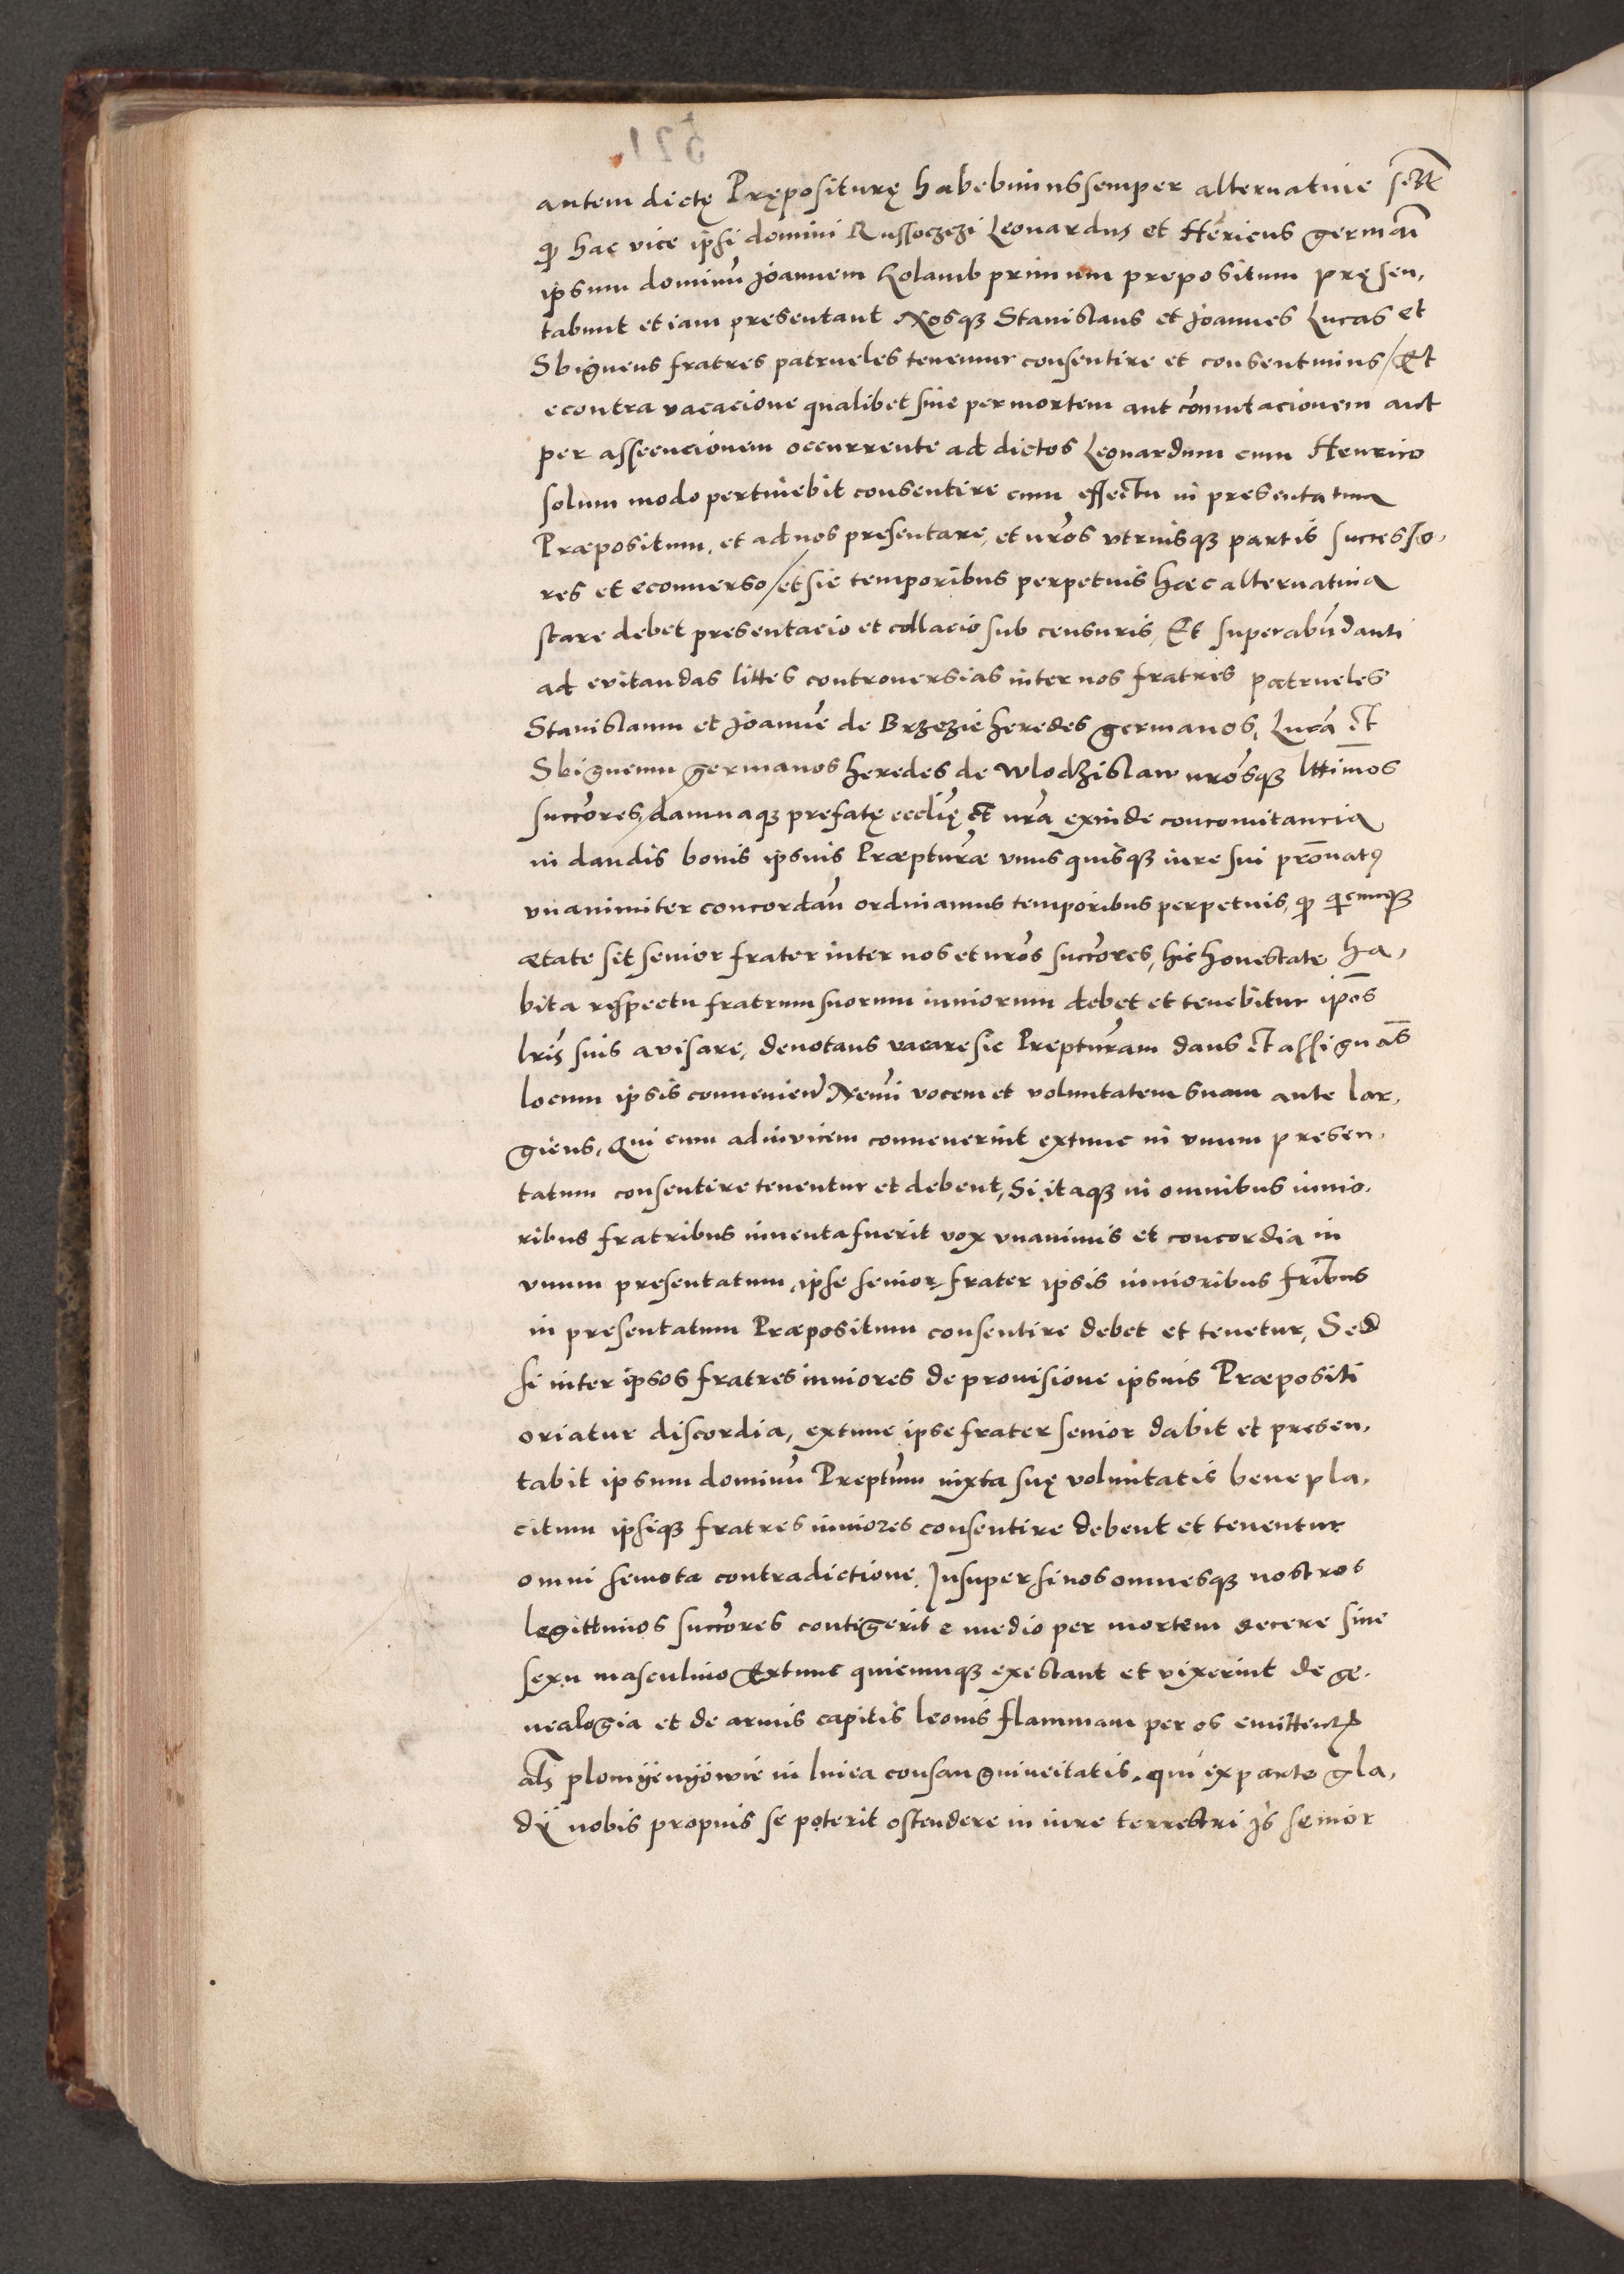 autem dictę Pręposituræ habebimus semper alternatiue scilt
ꝙ hac vice ipsi domini Russoczezi Leonardus et Hēricus germāi
ipsum dominū Joannem Kolamb primum prepositum pręsen,
tabunt et iam presentant Nosqꝫ Stanislaus et Joannes Lucas et
Sbigneus fratres patrueles tenemur consentire et consentimus / Et
econtra vacacione qualibet siue per mortem aut cōmutacionem aut
per assecucionem occurrente ad dictos Leonardum cum Henrico
solum modo pertinebit consentire cum effectu in presentatum
Præpositum, et ad nos presentare, et nr̄os vtriusqꝫ partis successo,
res et econuerso / et sic temporibus perpetuis hæc alternatiua
stare debet presentacio et collacio sub censuris, Et superabūdanti
ad euitandas littes controuersias inter nos fratres patrueles
Stanislaum et Joannē de Brzezie heredes germanos, Lucā et
Sbigneum germanos heredes de Wlodzislaw nr̄osqꝫ lttimos
succōres, damnaqꝫ prefatę ecclię et nrā exinde concomitancia
in dandis bonis ipsius Præpturæ vnusquisqꝫ iure sui prōnatꝰ
vnanimiter concordan̄ ordinamus temporibus perpetuis, ꝙ quicunqꝫ
ætate sit senior frater inter nos et nr̄os succōres, hic honestate ha,
bita respectu fratrum suorum iuniorum debet et tenebitur ipos
lr̄is suis auisare, denotans vacare sic Prepturam dans et assignās
locum ipsis conueniend Nemi vocem et voluntatem suam ante lar,
giens, Qui cum adinuicem conuenerint extunc in vnum presen,
tatum consentire tenentur et debent, Si itaqꝫ in omnibus iunio,
ribus fratribus inuenta fuerit vox vnanimis et concordia in
vnum presentatum, ipse senior frater ipsis iunioribus fribus
in presentatum Præpositum consentire debet et tenetur, Sed
si inter ipsos fratres iuniores de prouisione ipsius Præpositi
oriatur discordia, extunc ipse frater senior dabit et presen,
tabit ipsum dominū Preptum iuxta suę voluntatis benepla,
citum ipsiqꝫ fratres iuniores consentire debent et tenentur
omni semota contradictione, Insuper si nos omnesqꝫ nostros
legittimos succōres contigerit e medio per mortem decere sine
sexu masculino Extunc quicunqꝫ exestant et vixerint de ge,
nealogia et de armis capitis leonis flammam per os emittentꝭ
als plomÿenÿowie in linea consanguineitatis, qui ex parte gla,
dÿ nobis propius se poterit ostendere in iure terrestri is senior